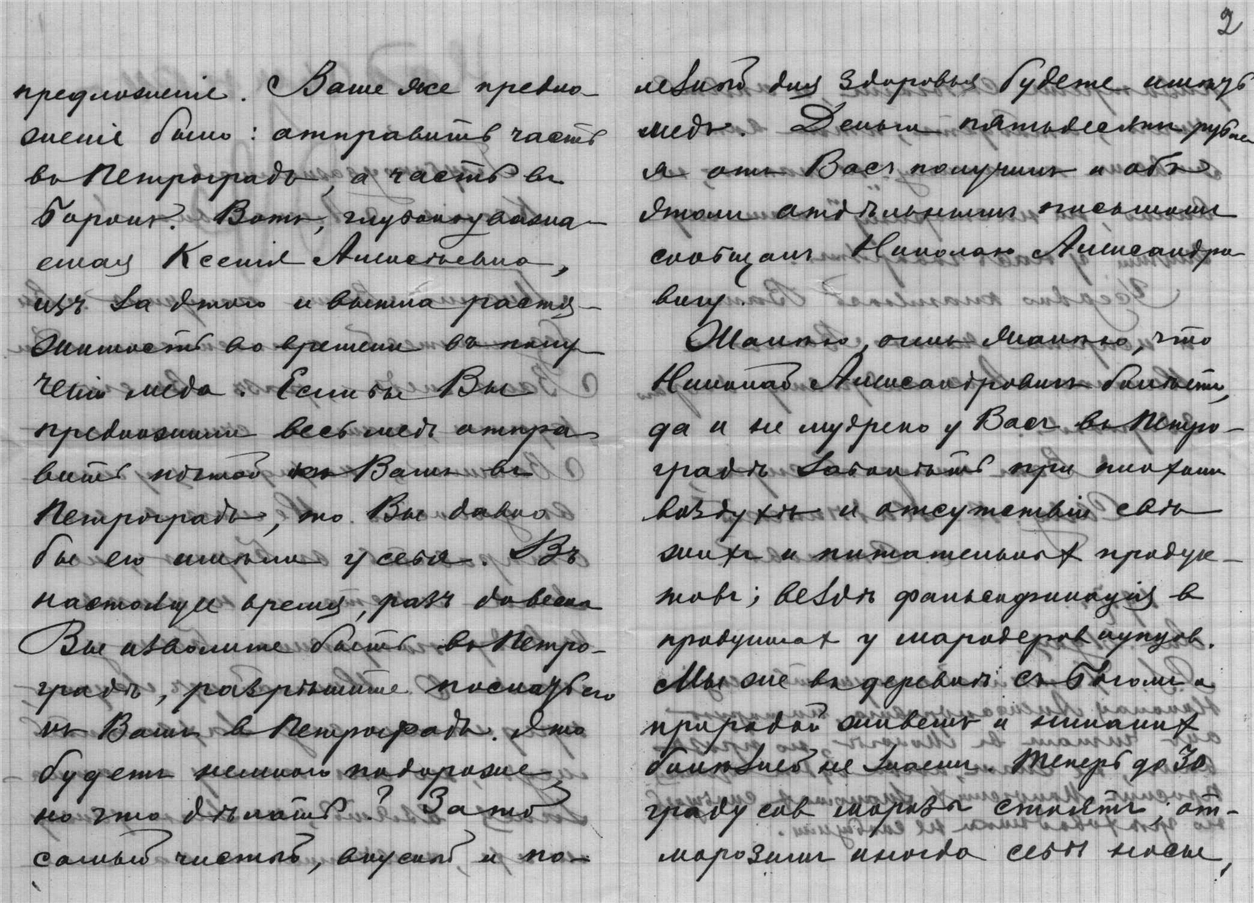 2
предложеніе. Ваше же предло-
женіе было: отправить часть
въ Петроградъ, а часть въ
Боровъ. Вотъ, глубокоуважа-
емая Ксенія Алексѣевна,
изъ за этого и вышла растя-
жимость во времени въ полу
ченіи меда. Если бы Вы
предложили весь медъ отпра
вить почтой къ Вамъ въ
Петроградъ, то Вы давно
бы его имѣли у себя. Въ
настоящее время, разъ до весны
Вы изволите быть въ Петро-
градѣ, разрѣшите послать его
къ Вамъ в Петроградъ. Это
будетъ немного подороже,
но что дѣлать? За то
самый чистый, вкусный, и по-
лезный для здоровья будете имѣть
медъ. Деньги пятьдесятъ рублей
я отъ Васъ получилъ и объ
этомъ отдѣльнымъ письмомъ
сообщалъ Николаю Александро-
вичу.
Жалѣю, очень жалѣю, что
Николай Александровичъ болѣетъ,
да и не мудрено у Васъ въ Петро-
градѣ заболѣть при плохомъ
воздухѣ и отсутствіи свѣ
жихъ и питательных продук-
товъ; вездѣ фальсификація в
продуктах у мародеров купцов.
Мы же въ деревнѣ съ Богомъ и
природой живемъ и никаких
болѣзней не знаемъ. Теперь до 30
градусов морозы стоятъ, от-
морозили иногда себѣ носы,